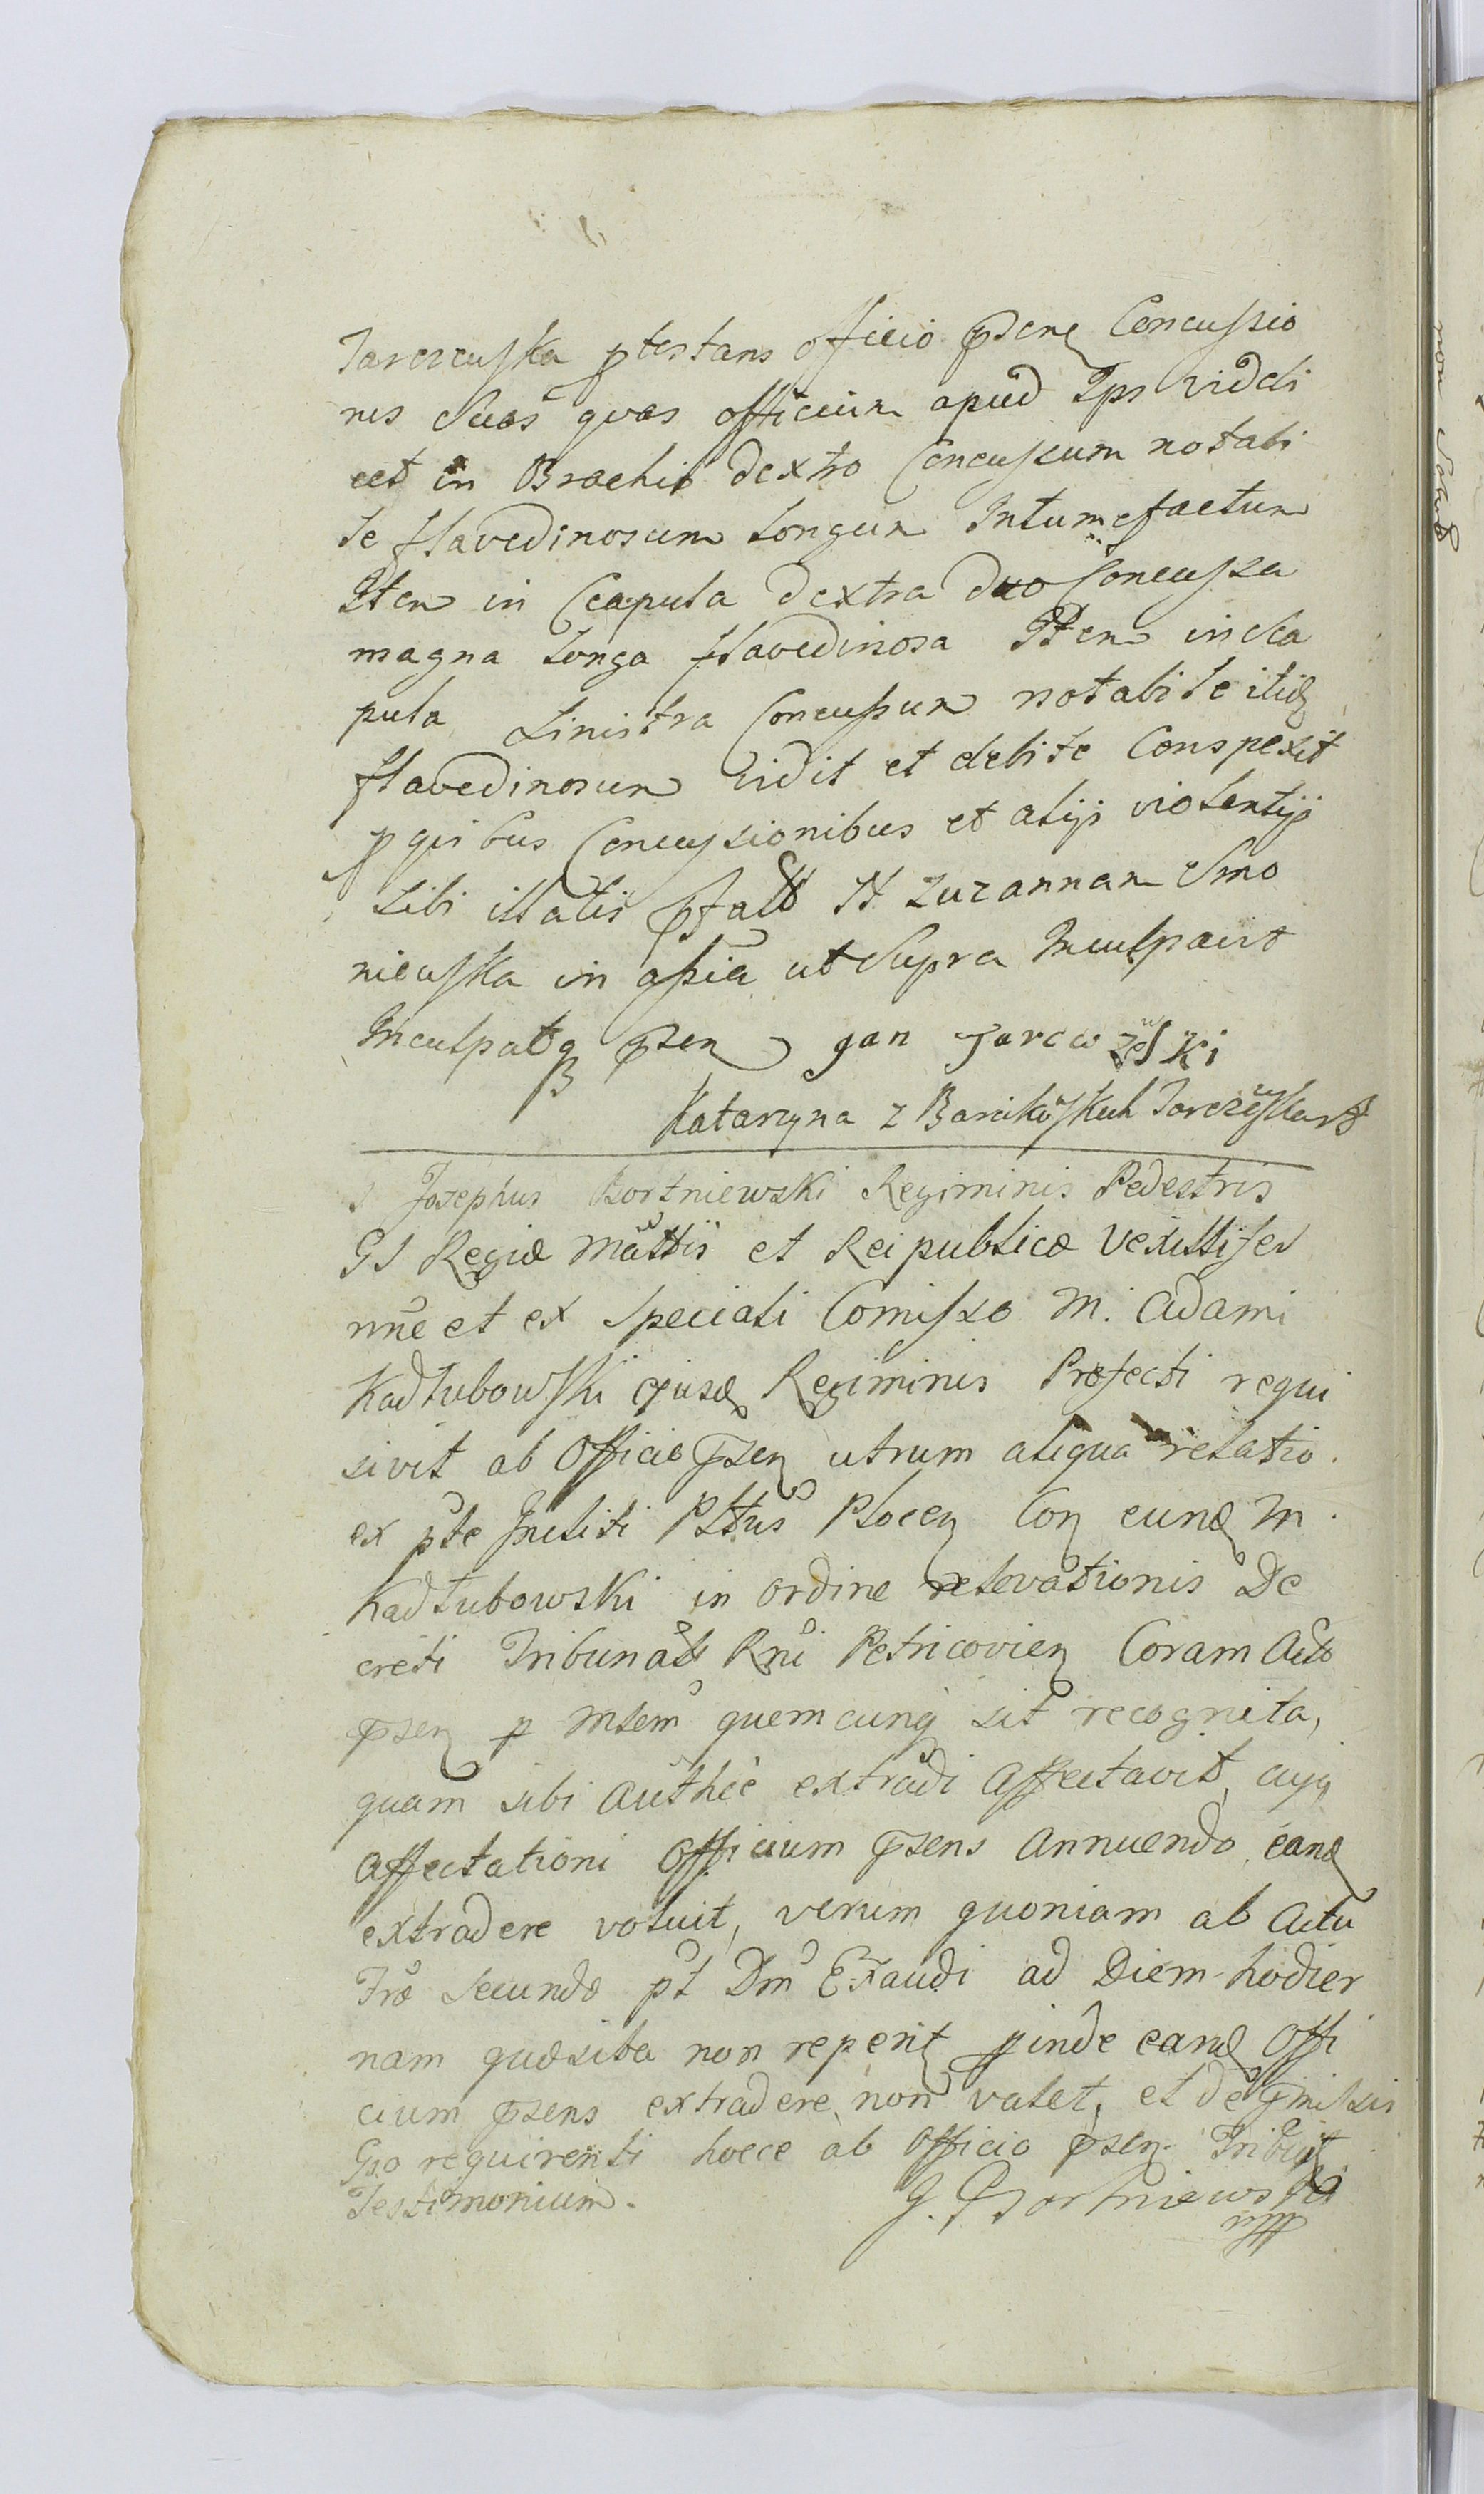 Jarczewska ptestans officio psene Concussio
nes Suas quas officium apud Ips viddi
cet in Brachio dextro Concussum notabi
le flavedinosum Longum Intumefactum
Item in Scapula dextra duo Concussa
magna Longa flavedinosa Item in Sca
pula Sinistra Concussum notabile itid
flavedinosum vidit et debite Conspexit
p quibus Concussionibus et alijs violentijs
Sibi illatis pfatt N Zuzannam Smo
niewska in assia ut Supra Inculpavit
Inculpatq psen Jan Jarcw zewski
Katarzyna z Barcikowskich Jarczewska
G Josephus Bortniewski Regiminis Pedestris
GS Regiæ Mattis et Reipublicæ Vexillifer
nne et ex Speciali Comisso M. Adami
Kadłubowski ejusd Regiminis Præfecti requi
sivit ab Officio psen utrum aliqua relatio
ex pte Incliti Plttus Plocen Con eund M.
Kadłubowski in ordine relevationis De
creti Tribunals Rni Petricovien Coram Acto
psen p mlem quemcunq sit recognita,
quam sibi authce extradi Affectavit, cujq
Affectationi Officium psens Annuendo, eand
extradere voluit, verum quoniam ab Actu
Fræ Secundæ pt Dm Exaudi ad Diem hodier
nam quæsita non reperit pinde eand Offi
cium psens extradere non valet, et de pmissis
Gso requirenti hocce ab Officio psen Tribuit
Testimonium. J. Bortniewski
mpp
non